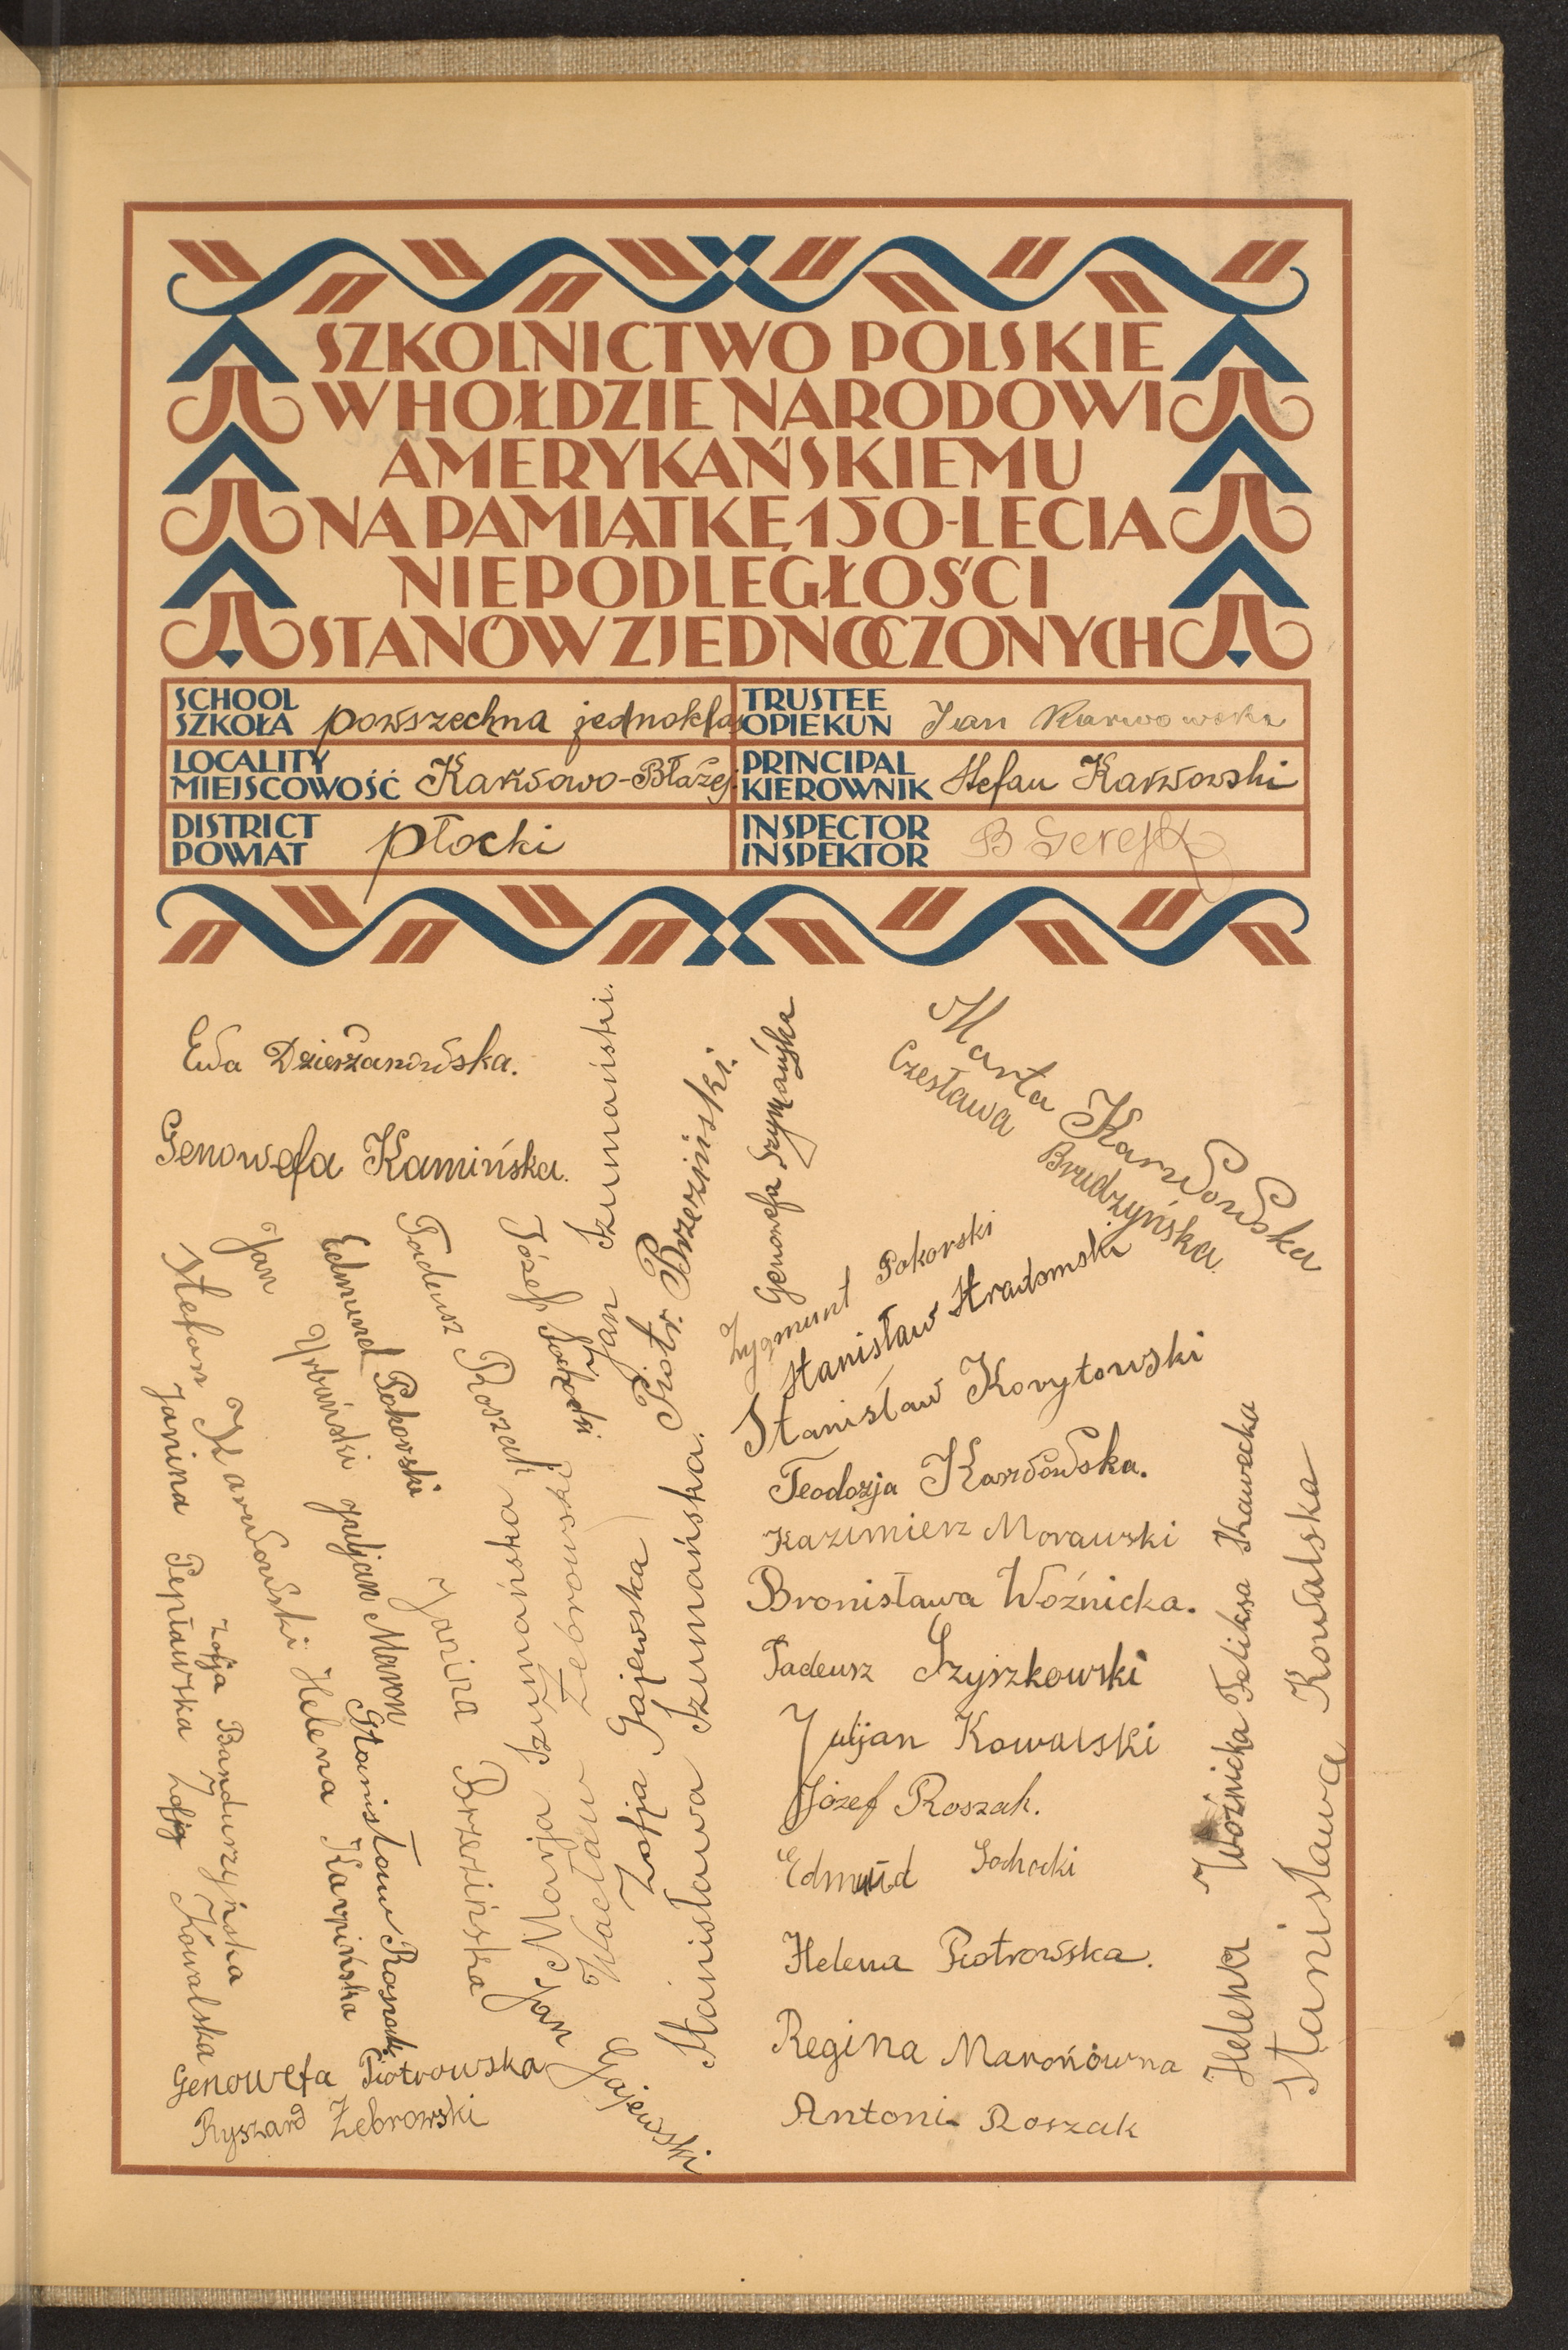 SZKOLNICTWO POLSKIE
W HOŁDZIE NARODOWI
AMERYKAŃSKIEMU
NA PAMIĄTKĘ 150-LECIA
NIEPODLEGŁOŚCI
STANÓW ZJEDNOCZONYCH
SCHOOL
SZKOŁA powszechna jednoklas
TRUSTEE
OPIEKUN Jan
LOCALITY
MIEJSCOWOŚĆ Karwowo-Błażej.
PRINCIPAL
KIEROWNIK Stefan Karwowski
DISTRICT
POWIAT płocki
INSPECTOR
INSPEKTOR B
Ewa Dzierżanowska.
Genowefa Kamińska.
Jan Szumański.
Piotr Brzeziński.
Genowefa Szymańska
Marta Karwowska
Czesława Brudzyńska
Zygmunt Pokorski
Stanisław Stradomski
Stanisław Korytowski
Teodozja Karwowska.
Kazimierz Morawski
Bronisława Woźnicka.
Tadeusz Szyszkowski
Juljan Kowalski
Józef Roszak.
Edmund Sochocki
Helena Piotrowska.
Regina Maronówna
Antoni Roszak
Stefan Karwowski
Jan Urbański
Edmund Pokorski
Tadeusz Roszak
Józef Sochocki
Janina Pepławska
Zofja Bandurzyńska
Zofja Kowalska
Helena Karpińska
Juljan Maron
Stanisław Roszak
Janina Brzezińska
Marja Szumańska
Wacław Żebrowski
Zofja Gajewska
Stanisława Szumańska.
Jan Gajewski
Genowefa Piotrowska
Ryszard Żebrowski
Feliksa Kawecka
Helena Woźnicka
Stanisława Kowalska